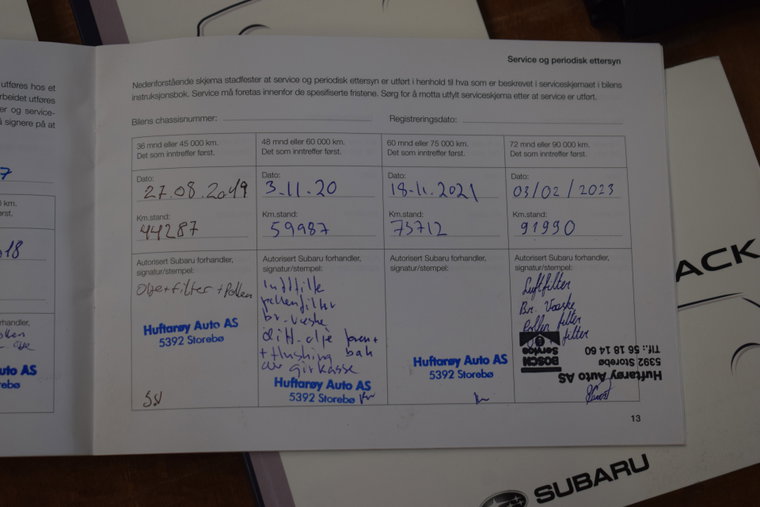 utføres hos et
arbeidet utføres
er og service-
å signere på at
7
0 km.
ørst.
.18
rhandler,
uto AS
rebø
Service og periodisk ettersyn
Nedenforstående skjema stadfester at service og periodisk ettersyn er utført i henhold til hva som er beskrevet i serviceskjemaet i bilens
instruksjonsbok. Service må foretas innenfor de spesifiserte fristene. Sørg for å motta utfylt serviceskjema etter at service er utført.
Bilens chassisnummer:
Registreringsdato:
36 mnd eller 45 000 km.
Det som inntreffer først.
Dato:
27.08.2019
Km.stand:
44287
Autorisert Subaru forhandler,
signatur/stempel:
Olje+filter+Pollen
Huftarøy Auto AS
5392 Storebø
48 mnd eller 60 000 km.
Det som inntreffer først.
Dato:
3.11.20
Km.stand:
59987
Autorisert Subaru forhandler,
signatur/stempel:
pollenfilter
br.væske
Diff.olje
+ flushing bak
av girkasse
Huftarøy Auto AS
5392 Storebø
60 mnd eller 75 000 km.
Det som inntreffer først.
Dato:
18-11.2021
Km.stand:
73712
Autorisert Subaru forhandler,
signatur/stempel:
Huftarøy Auto AS
5392 Storebø
72 mnd eller 90 000 km.
Det som inntreffer først.
Dato:
03/02/2023
Km.stand:
91990
Autorisert Subaru forhandler,
signatur/stempel:
Luftfilter
Br. Væske
Pollen filter
filter
BOSCH
Service
Huftarøy Auto AS
5392 Storebø
Tlf.: 56 18 14 60
13
ACK
SUBARU